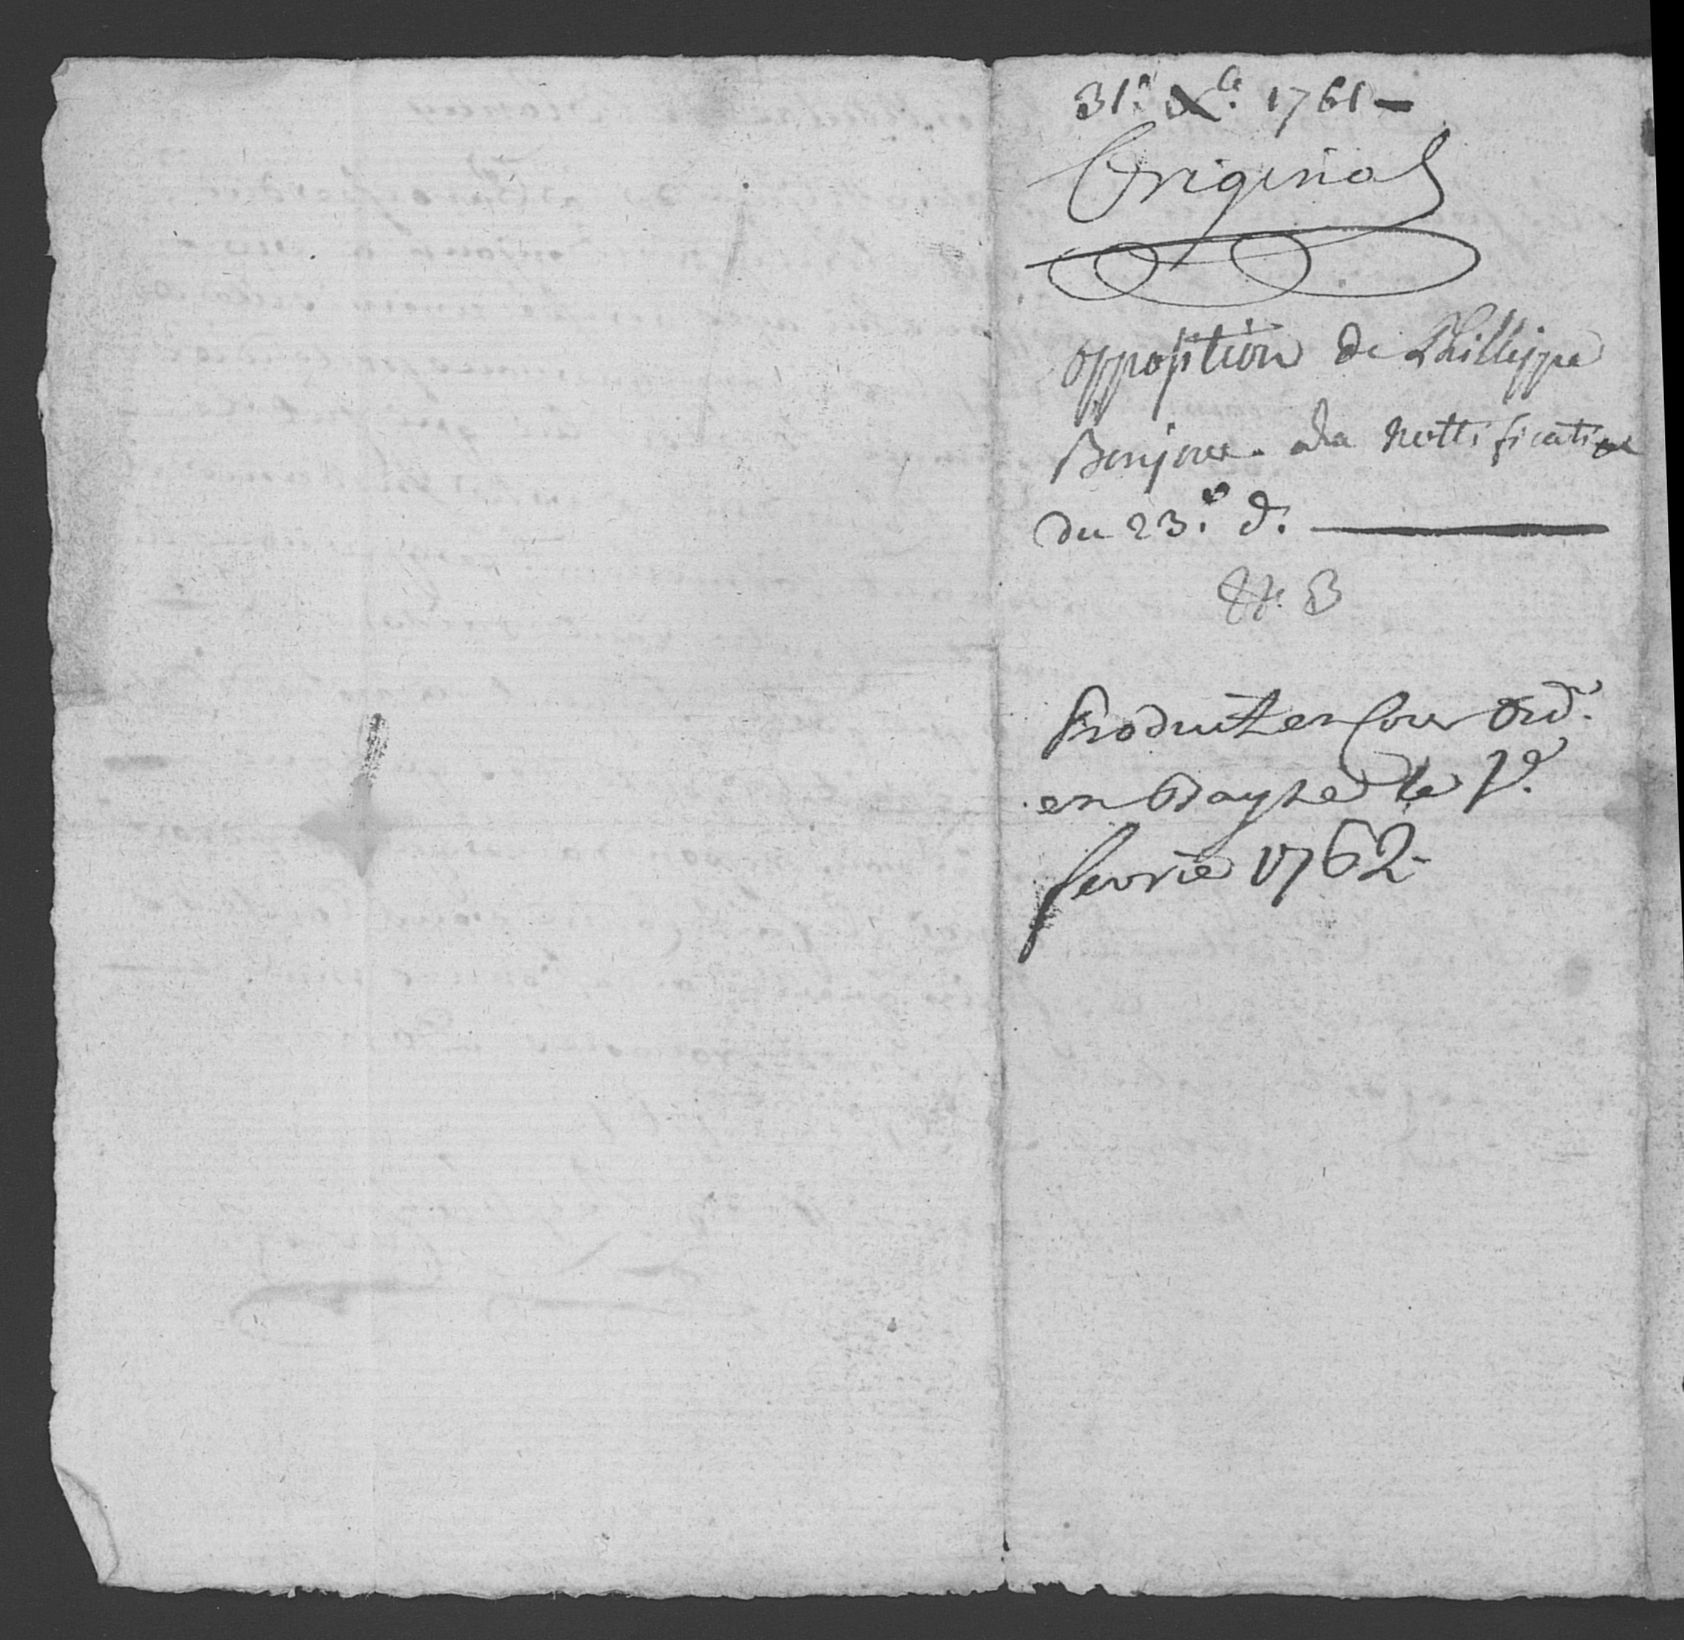 31.e Xbr. 1761 —
Original
opposition de Phillippe
Bonjour. a la Nottification
du 23.e d.
N. 3
Produit en Cour ord.
en Baysse le 1.e
fevrie 1762.